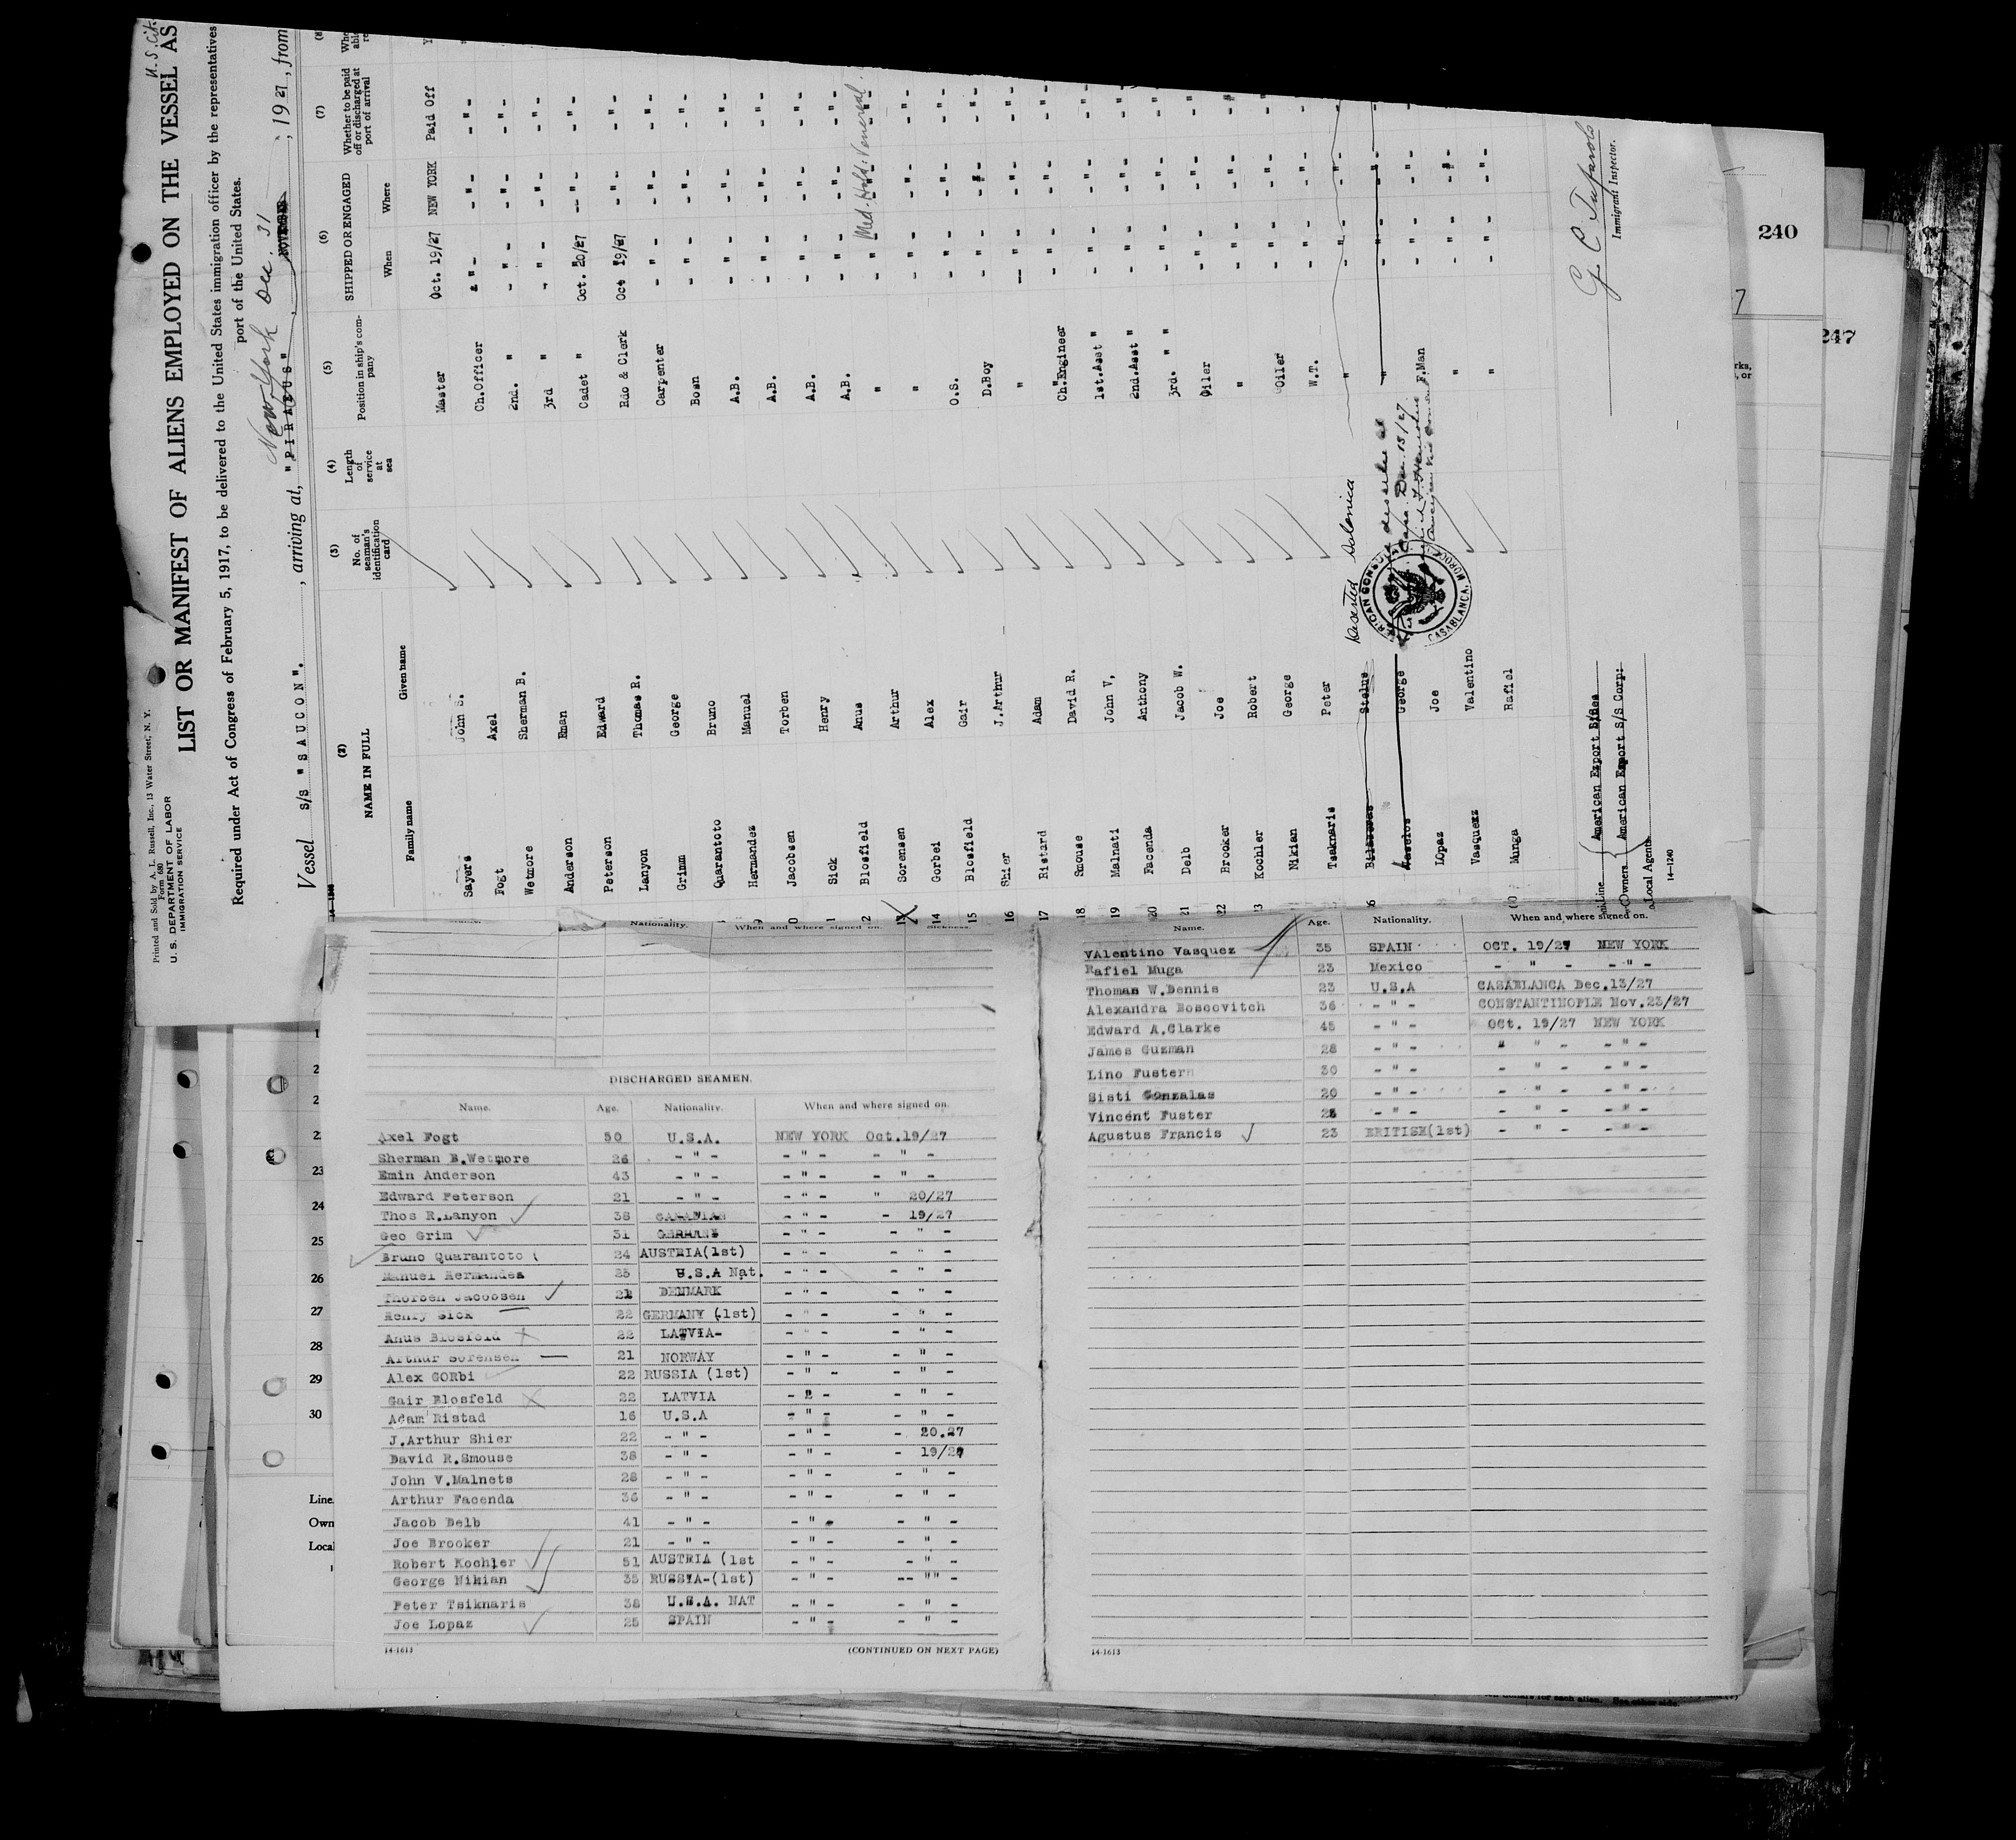 Printed and Sold by A. L. Russell, Inc., 13 Water Street, N. Y.
Form 680
U. S. DEPARTMENT OF LABOR
IMMIGRATION SERVICE
U.S. Cit.
LIST OR MANIFEST OF ALIENS EMPLOYED ON THE VESSEL AS
Required under Act of Congress of February 5, 1917, to be delivered to the United States immigration officer by the representatives
port of the United States.
New York Dec. 31
Vessel s/s "SAUCON". , arriving at, "PIRAEUS" , 1927, from
(2) (3) (4) (5) (6) (7) (8)
NAME IN FULL
Family name Given name
No. of seaman's identification card
Length of service at sea
Position in ship's company
SHIPPED OR ENGAGED
When Where
Whether to be paid off or discharged at port of arrival
Sayers John S. Master Oct. 19/27 NEW YORK Paid Off
Fogt Axel Ch.Officer - " - - " - - " -
Wetmore Sherman B. 2nd. " - " - - " - - " -
Anderson Eman 3rd " - " - - " - - " -
Peterson Edward Cadet " Oct. 20/27 - " - - " -
Lanyon Thomas R. Rdo & Clerk Oct 19/27 - " - - " -
Grimm George Carpenter - " - - " - - " -
Quarantoto Bruno Bosn - " - - " - - " -
Hernandez Manuel A.B. - " - - " - - " -
Jacobsen Torben A.B. - " - - " - - " -
Sick Henry A.B. - " - - " - - " -
Blosfield Anus A.B. - " - - " - - " -
Med. Hold. Venereal.
Sorensen Arthur "
14 Gorbei Alex " - " - - " - - " -
15 Blosfield Gair O.S. - " - - " - - " -
16 Shier J.Arthur D.Boy - " - - " - - " -
17 Ristard Adam " - " - - " - - " -
18 Smouse David R. Ch.Engineer - " - - " - - " -
19 Malnati John V, 1st.Asst " - " - - " - - " -
20 Facenda Anthony 2nd.Asst " - " - - " - - " -
21 Delb Jacob W. 3rd. " " - " - - " - - " -
22 Brooker Joe Oiler - " - - " - - " -
Kochler Robert " - " - - " - - " -
Nikian George Oiler - " - - " - - " -
Tsaknaris Peter W.T. - " - - " - - " -
Stelus " Deserted Salonica
George "
Lopaz Joe F.Man - " - - " - - " -
Vasquezz Valentino " - " - - " - - " -
Munga Rafiel " - " - - " - - " -
CASABLANCA, MOROCCO
Line American Export Lines
Owners American Export S/S Corp:
Local Agents
14-1240
Immigrant Inspector.
240
247
22
23
24
25
26
27
28
29
30
Line
Own
Local
Nationality. When and where signed on.
DISCHARGED SEAMEN.
Name. Age. Nationality. When and where signed on.
Axel Fogt 50 U.S.A. NEW YORK Oct.19/27
Sherman B.Wetmore 26 - " - - " - - " -
Emin Anderson 43 - " - - " - - " -
Edward Peterson 21 - " - - " - " 20/27
Thos R.Lanyon 38 CANADIAN - " - - 19/27
Geo Grim 31 GERMANY - " - - " -
Bruno Quarantoto 24 AUSTRIA(1st) - " - - " -
Manuel Hernandea 25 U.S.A Nat. - " - - " -
Thorben Jacobsen 22 DENMARK - " - - " -
Henry Sick 22 GERMANY (1st) - " - - " -
Anus Blosfeld 22 LATVIA- - " - - " -
Arthur Sorensen 21 NORWAY - " - - " -
Alex GORbi 22 RUSSIA (1st) - " - - " -
Gair Blosfeld 22 LATVIA - " - - " -
Adam Ristad 16 U.S.A - " - - " -
J.Arthur Shier 22 - " - - " - - 20.27
David R.Smouse 38 - " - - " - - 19/27
John V.Malnets 28 - " - - " - - " -
Arthur Facenda 36 - " - - " - - " -
Jacob Delb 41 - " - - " - - " -
Joe Brooker 21 - " - - " - - " -
Robert Kochler 51 AUSTRIA (1st - " - - " -
George Nikian 35 RUSSIA-(1st) - " - -- "" -
Peter Tsiknaris 38 U.S.A. NAT - " - - " -
Joe Lopaz 25 SPAIN - " - - " -
14-1613 (CONTINUED ON NEXT PAGE)
Name. Age. Nationality. When and where signed on.
VAlentino Vasquez 35 SPAIN OCT. 19/27 NEW YORK
Rafiel Muga 23 Mexico - " - - " -
Thomas W.Dennis 23 U.S.A CASABLANCA Dec.13/27
Alexandra Boscovitch 36 - " - CONSTANTINOPLE Nov.23/27
Edward A.Clarke 45 - " - OCt. 19/27 NEW YORK
James Guzman 28 - " - " " - - " -
Lino Fustern 30 - " - - " - - " -
Sisti Gonzalas 20 - " - - " - - " -
Vincent Fuster 25 - " - - " - - " -
Agustus Francis 23 BRITISH(1st) - " - - " -
14-1613